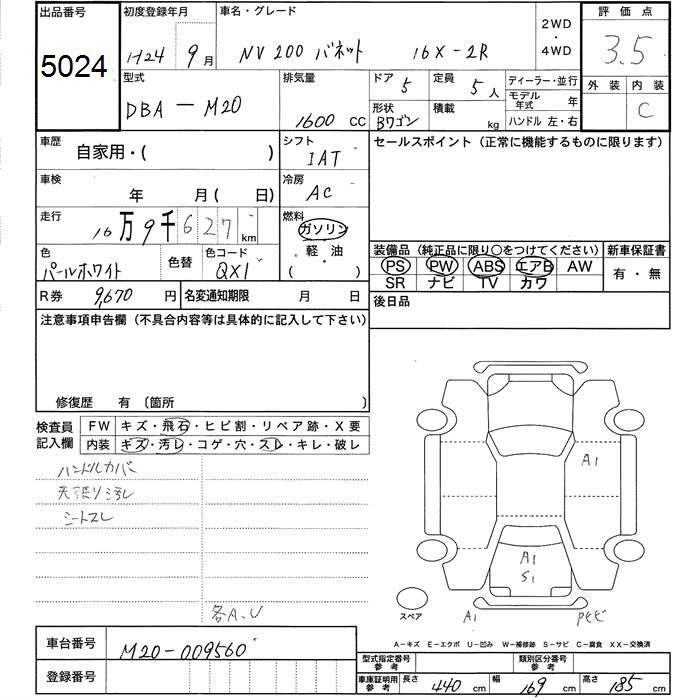 出品番号 初度登録年月 車名・グレード 2WD・4WD 評価点
5024 H24年9月 NV200 バネット 16X-2R 3.5
型式 排気量 ドア 5 定員 5人 ディーラー・並行 外装 内装
DBA-M20 1600 CC 形状 Bワゴン 積載 kg モデル年式 年 C
ハンドル 左・右
車歴 自家用・( ) シフト IAT セールスポイント(正常に機能するものに限ります)
車検 年 月( 日) 冷房 AC
走行 16万9千627km 燃料 ガソリン・軽・油 ( )
色 パールホワイト 色替 色コード QX1 装備品(純正品に限り○をつけてください) 新車保証書
PS PW ABS エアB AW 有・無
SR ナビ TV カワ
R券 9,670 円 名変通知期限 月 日 後日品
注意事項申告欄(不具合内容等は具体的に記入して下さい)
修復歴 有〔箇所 〕
検査員記入欄 FW キズ・飛石・ヒビ割・リペア跡・X要
内装 キズ・汚レ・コゲ・穴・スレ・キレ・破レ
ハンドルカバ
天張り汚レ
シートスレ
A1
A1
S1
各A、U
スペア A1
A-キズ E-エクボ U-凹み W-補修跡 S-サビ C-腐食 XX-交換済
車台番号 M20-009560
登録番号
型式指定番号参考 類別区分番号参考
車庫証明用参考 長さ 440 cm 幅 169 cm 高さ 185 cm